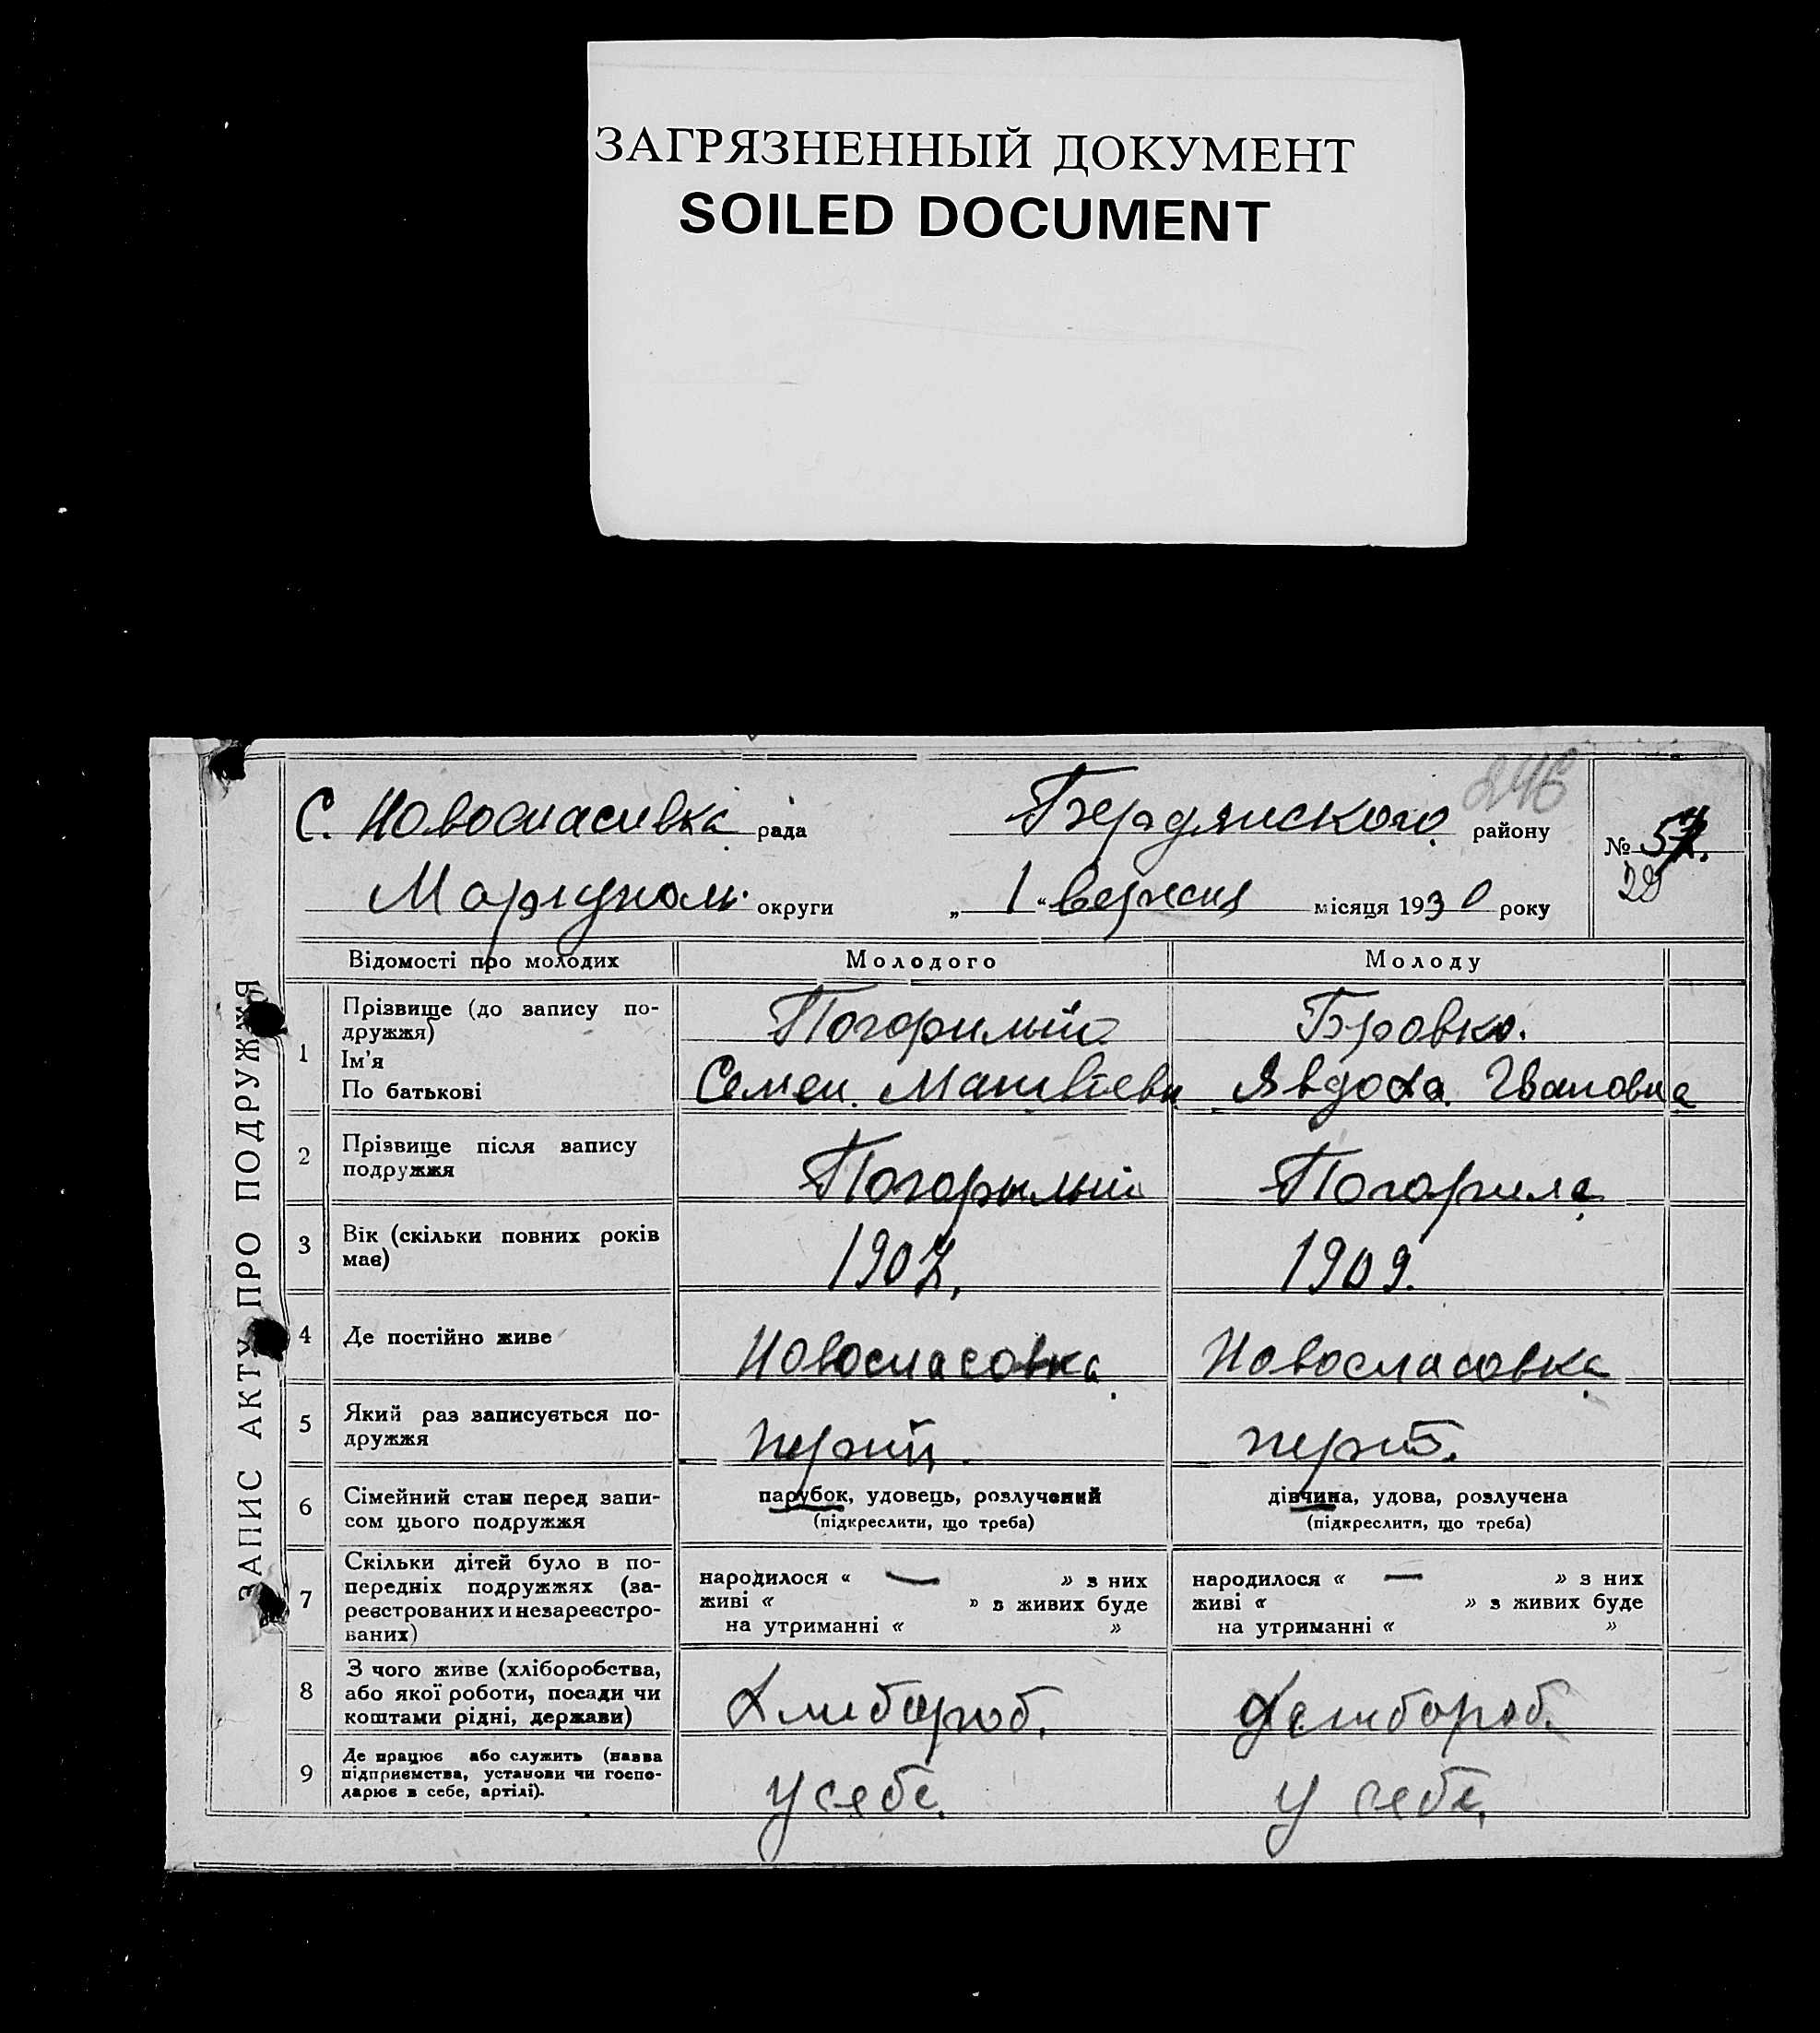 ЗАГРЯЗНЕННЫЙ ДОКУМЕНТ
SOILED DOCUMENT
246
ЗАПИС АКТУ ПРО ПОДРУЖЖЯ
С. Новоспасивка рада Бердянского району
№ 57.
29
Мариупол. округи „ 1 “ вересня місяця 1930 року
Відомості про молодих Молодого Молоду
1 Прізвище (до запису по-
дружжя) Погорилый Бровко.
Ім'я
По батькові Семен. Матвіеви Явдоха. Івановна
2 Прізвище після запису
подружжя Погорылый Погорила
3 Вік (скільки повних років
має) 1907. 1909.
4 Де постійно живе Новоспасовка Новоспасовка
5 Який раз записується по-
дружжя
6 Сімейний стан перед запи-
сом цього подружжя
парубок, удовець, розлучений
(підкреслити, що треба)
дівчина, удова, розлучена
(підкреслити, що треба)
7 Скільки дітей було в по-
передніх подружжях (за-
реєстрованих и незареєстро-
ваних)
народилося « — » з них
живі « » в живих буде
на утриманні « »
народилося « — » з них
живі « » з живих буде
на утриманні « »
8 З чого живе (хліборобства,
або якої роботи, посади чи
коштами рідні, держави) Хлибороб. Хлибороб.
9 Де працює або служить (назва
підприємства, установи чи госпо-
дарює в себе, артілі). у себе. у себе.